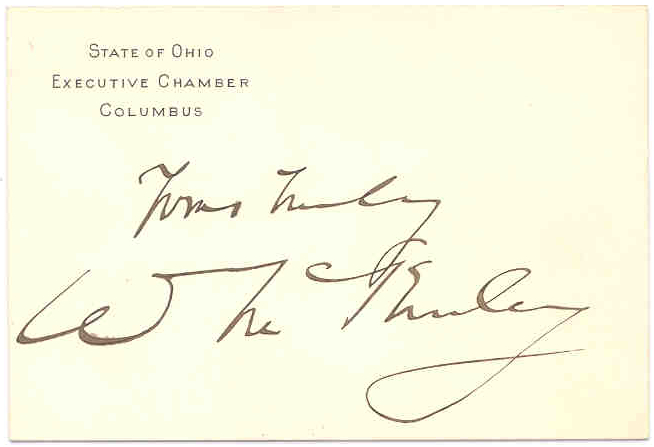 STATE OF OHIO
EXECUTIVE CHAMBER
COLUMBUS
Yours truly
W McKinley